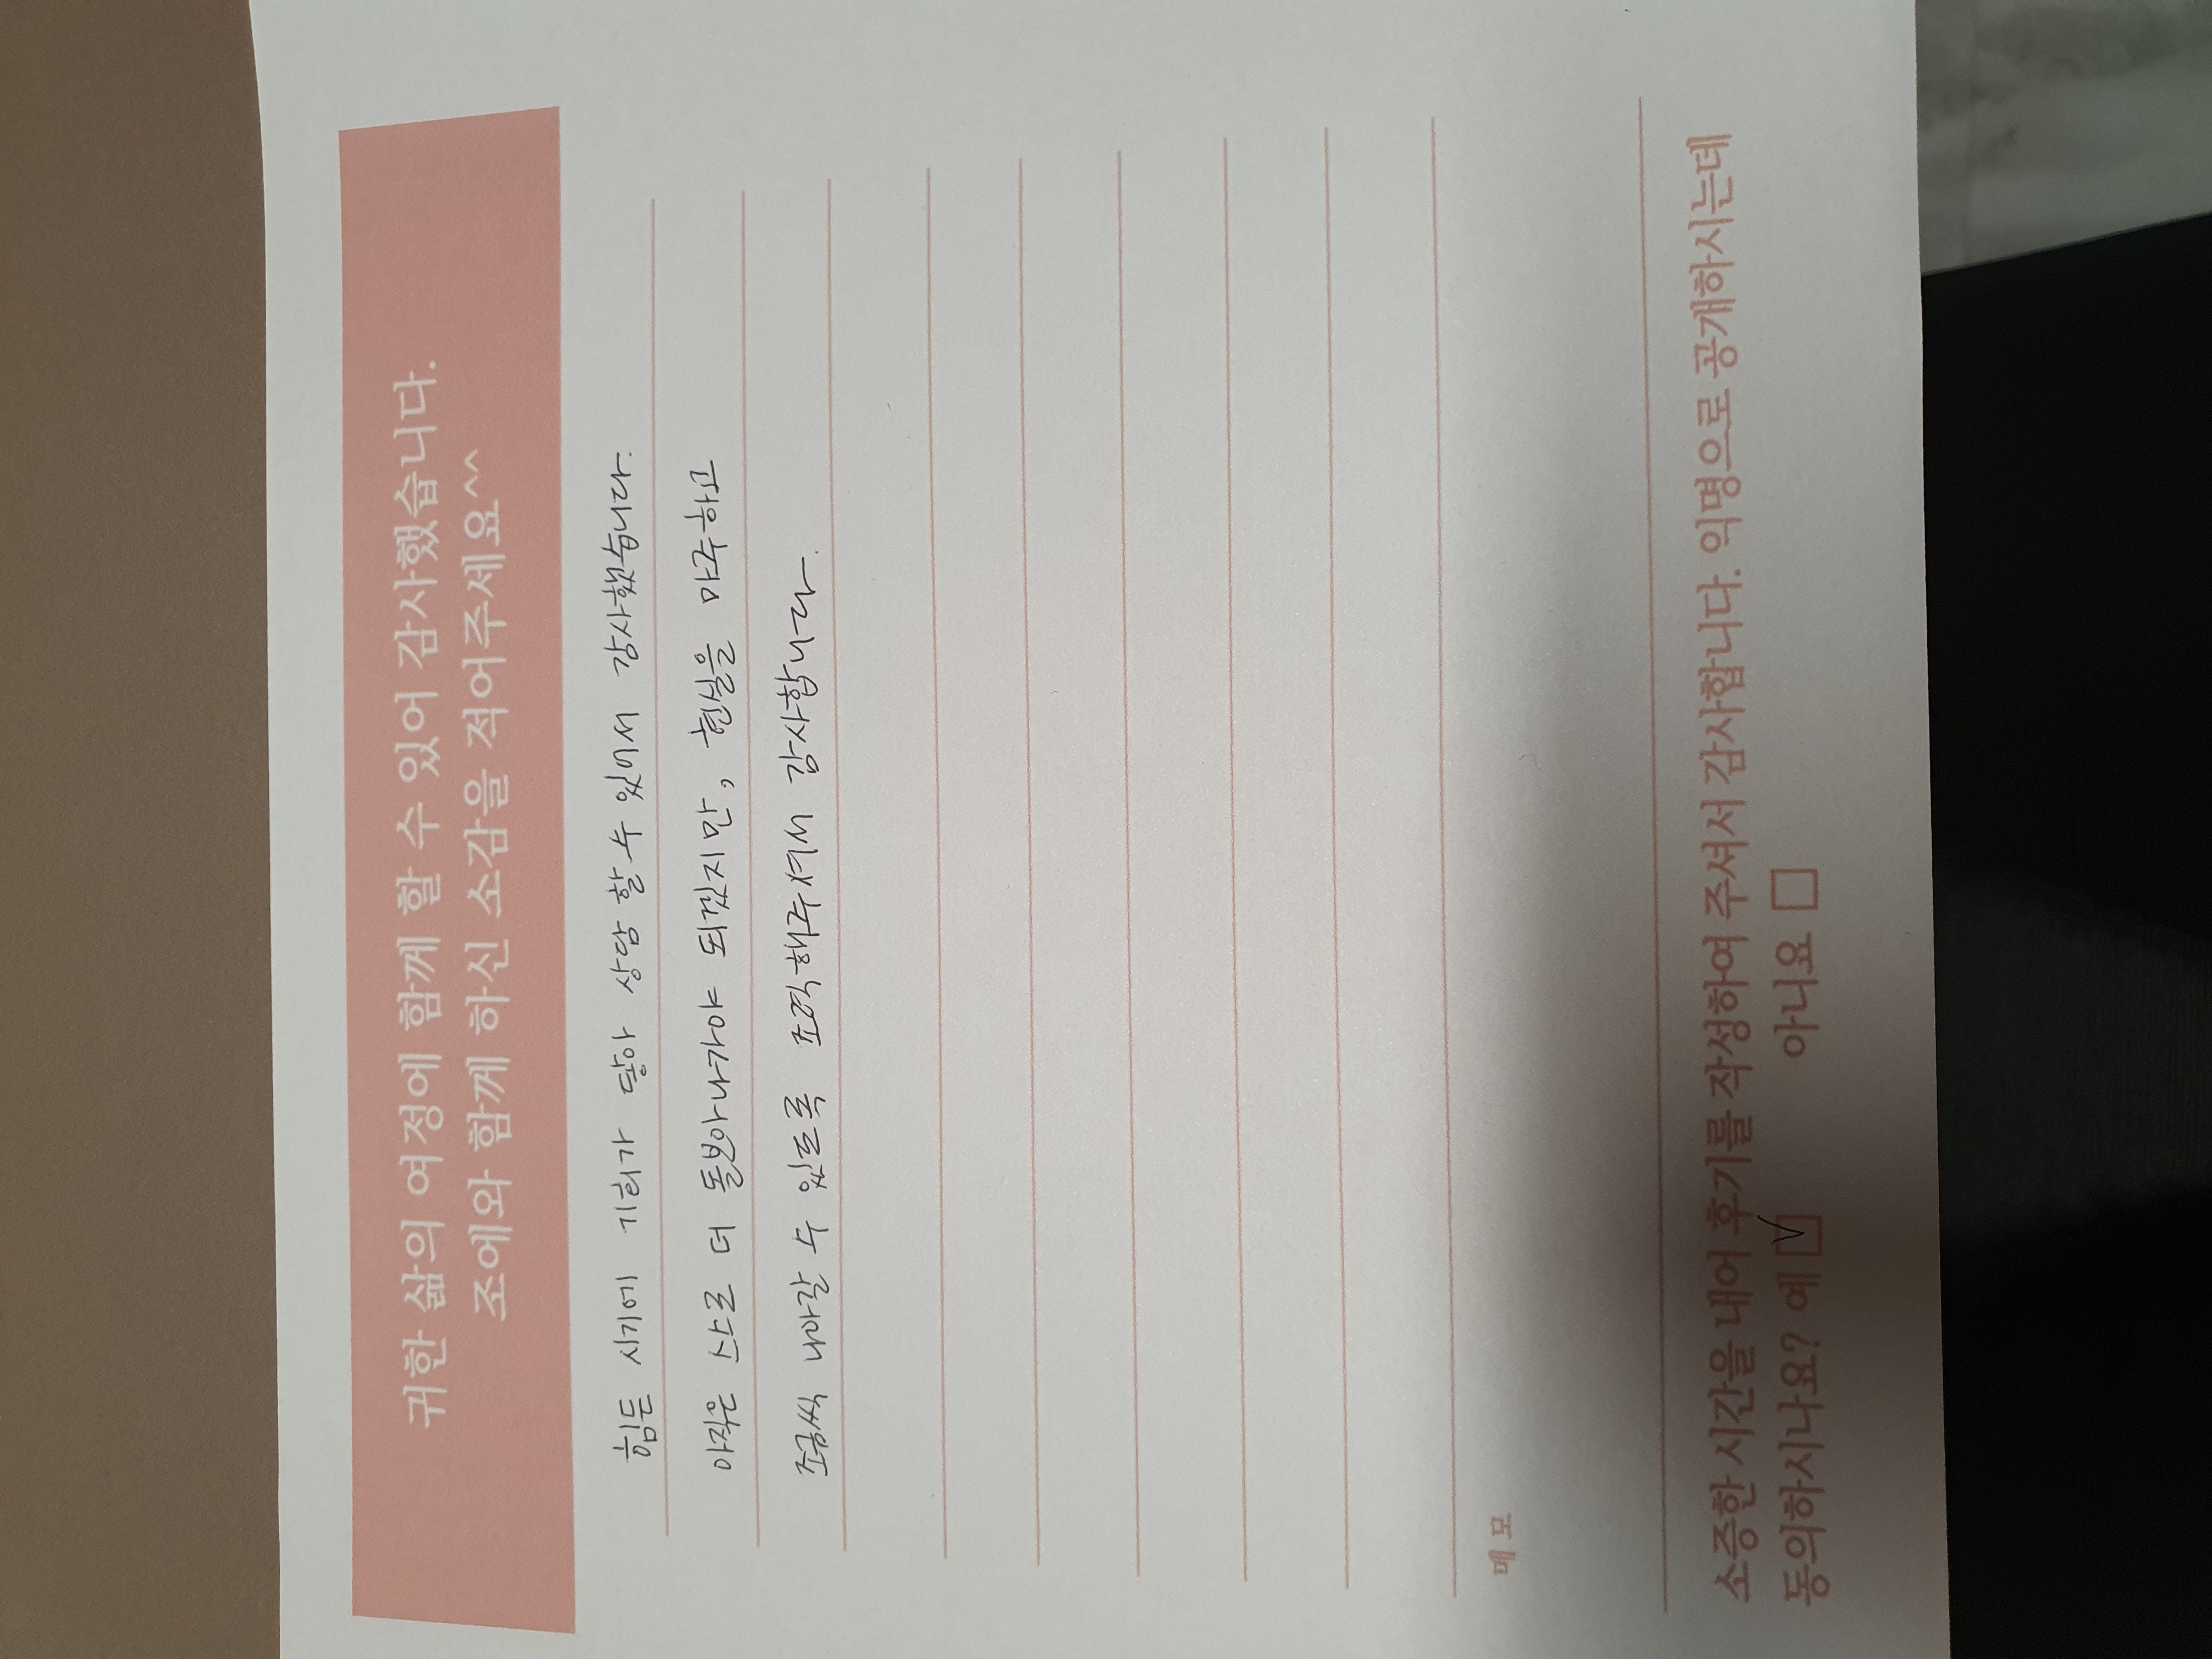 귀한 삶의 여정에 함께 할 수 있어 감사했습니다.
조에와 함께 하신 소감을 적어주세요^^
힘든 시기에 기회가 닿아 상담 할 수 있어서 감사했습니다.
아직은 스스로 더 돌보아나가야 되겠지만, 현실을 마주하고
조금씩 나아갈 수 있도록 조력해주셔서 감사합니다.
메모
소증한 시간을 내어 후기를 작성하여 주셔서 감사합니다. 익명으로 공개하시는데
동의하시나요? 예 ☑ 아니요 ☐